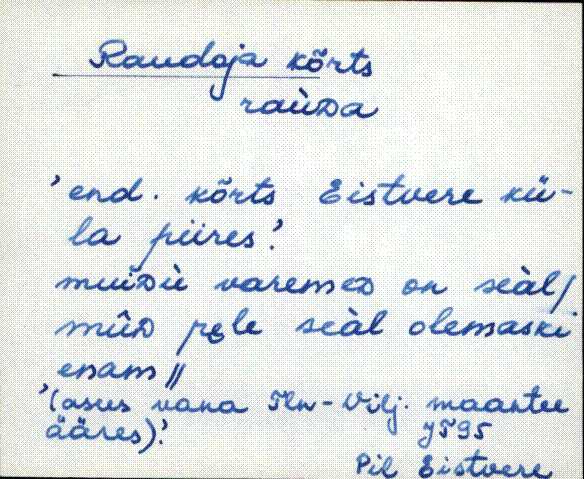 Raudoja kõrts
raùᴅa
'end. kõrts Eistvere kü-
la piires.'
muiᴅù varemeᴅ on seàl/
mûᴅ pęle seàl olemaski
enam //
'(asus vana Tln-Vilj. maantee
ääres).'
J595
Pil Eistvere